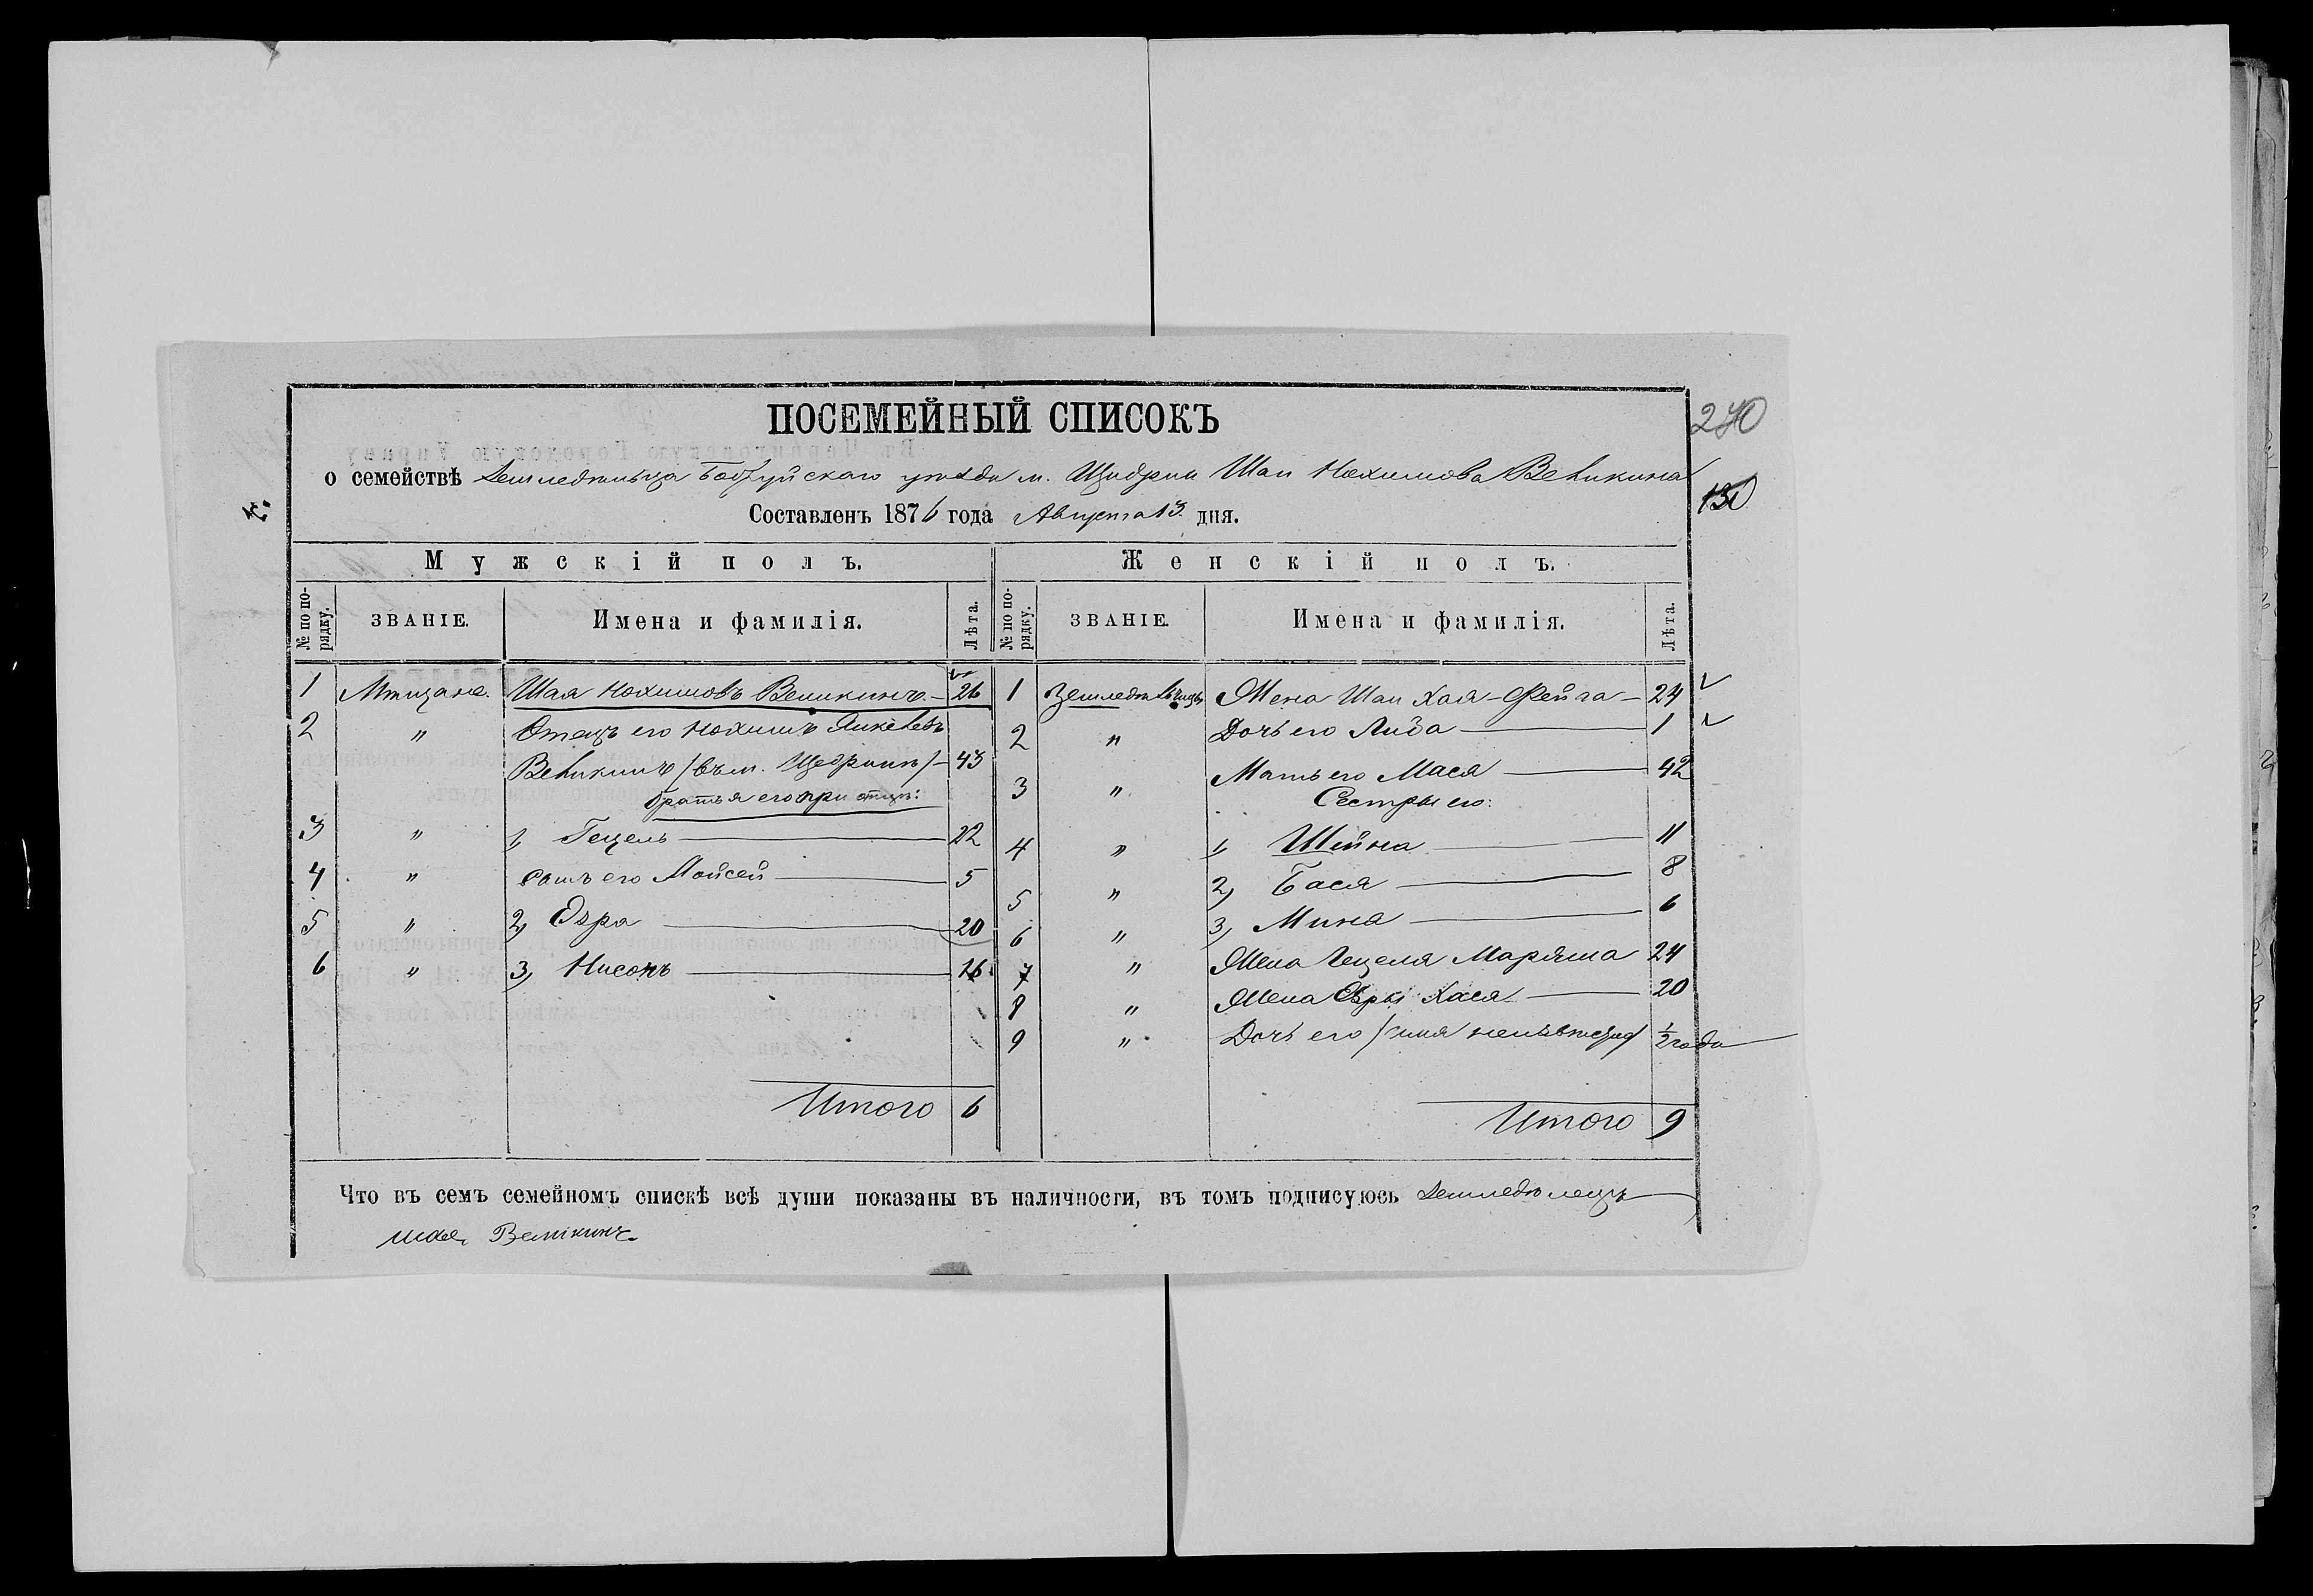 ПОСЕМЕЙНЫЙ СПИСОКЪ
270
о семействѣ Земледѣльца Бобруйскаго уѣзда м. Щедрин Шаи Нохимова Великина
130
Составленъ 1876 года Августа 13 дня.
Мужскій полъ. Женскій полъ.
№ по порядку. ЗВАНІЕ. Имена и фамилія. Лѣта. № по порядку. ЗВАНІЕ. Имена и фамилія. Лѣта.
1 Мѣщане. Шая Нохимовъ Великинъ — 26
2 " Отецъ его Нохимъ Янкелевъ
Великинъ / въ м. Щедринѣ / — 43
братья его при отцѣ:
3 " 1, Гецель — 22
4 " сынъ его Мойсей — 5
5 " 2, Озра — 20
6 " 3, Нисонъ — 16
Итого 6
1 Жена Шаи Хая-Фейга — 24
2 " Дочь его Либа — 1
3 " Мать его Мася — 42
Сестры его:
4 " 1, Шейна — 11
5 " 2, Бася — 8
6 " 3, Мина — 6
7 " Жена Гецеля Маряша 24
8 " Жена Озры Хася — 20
9 " Дочь его / имя неизвѣстно / ½ года
Итого 9
Что въ семъ семейномъ спискѣ всѣ души показаны въ наличности, въ томъ подписуюсь Земледѣлецъ
шая Великинъ.